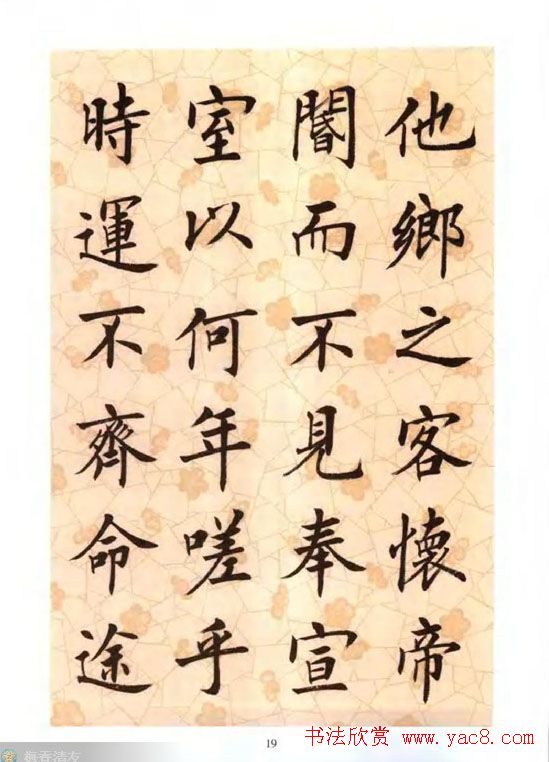 他鄉之客懷帝
閽而不見奉宣
室以何年嗟乎
時運不齊命途
19
书法欣赏 www.yac8.com
梅香清友